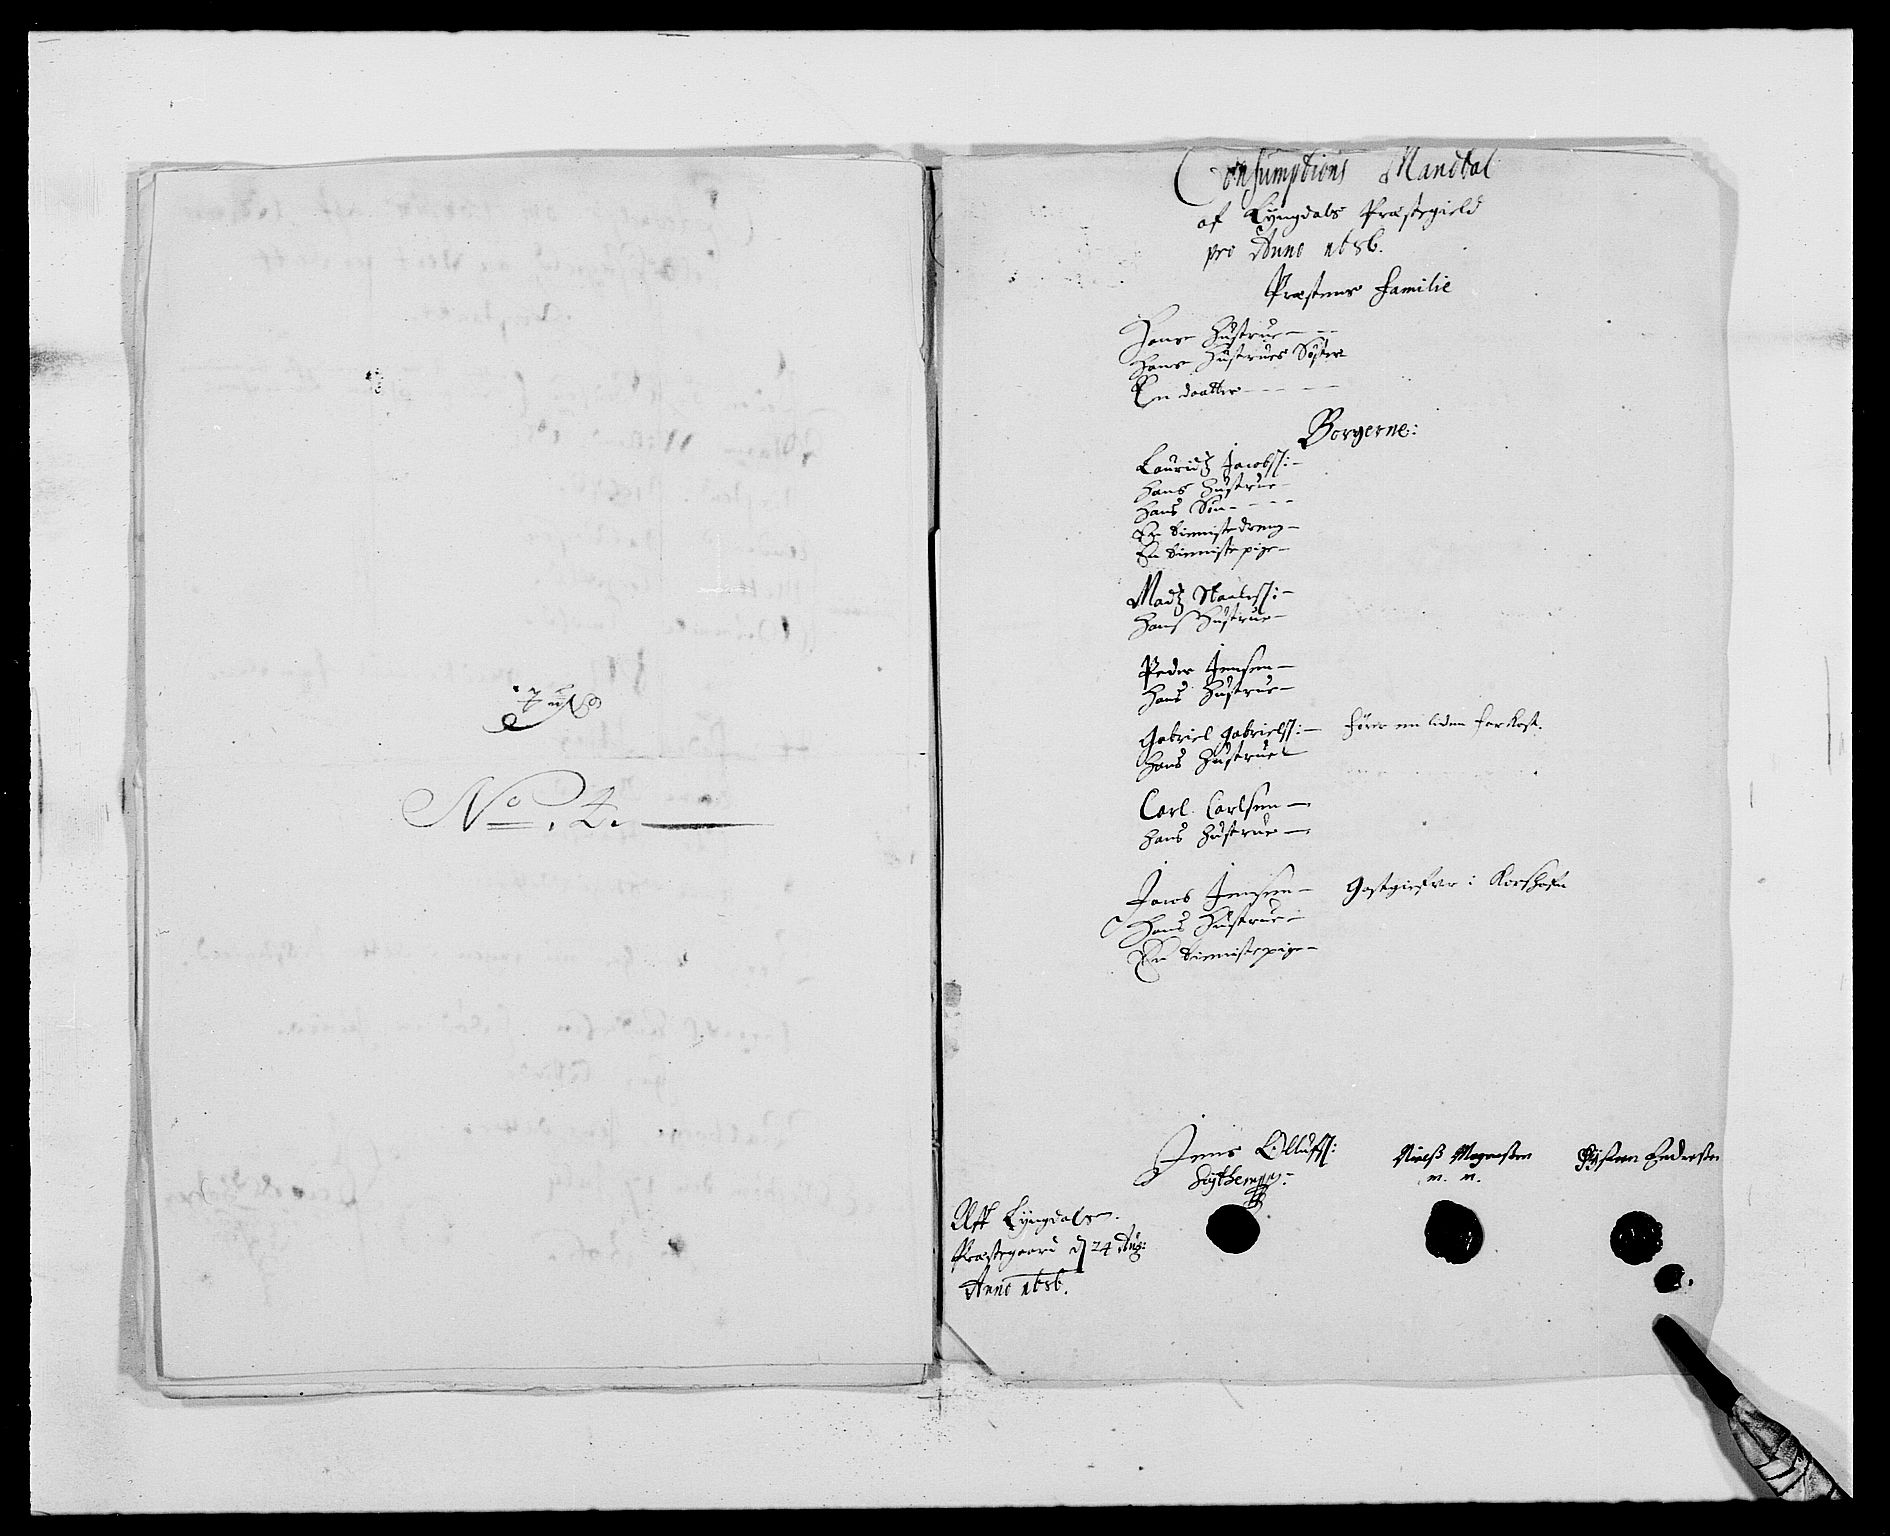 No. 2.
Consumptions Mandtal
af Lyngdals Præstegield
pro Anno 1686.
Præstens Familie
Hans Hustrue
Hans Hustrues Søster
En daatter
Borgerne:
Lauridtz Jacobss:
Hans Hustrue
Hans Søn
En tienniste dreng
En tienniste pige
Madtz
Hans Hustrue
Peder Jensen
Hans Hustrue
Gabriel Gabrielss: fører en liden farkost.
Hans Hustrue
Carl Carlsen
Hans Hustrue
Jacob Jensen Gestgiefver i Korshafn
Hans Hustrue
En tienniste pige
Jens Olluffs: Nielß Mogenßen Endreßen
m. n.
Aff Lyngdals
Præstegaard d 24 Aug:
Anno 1686.